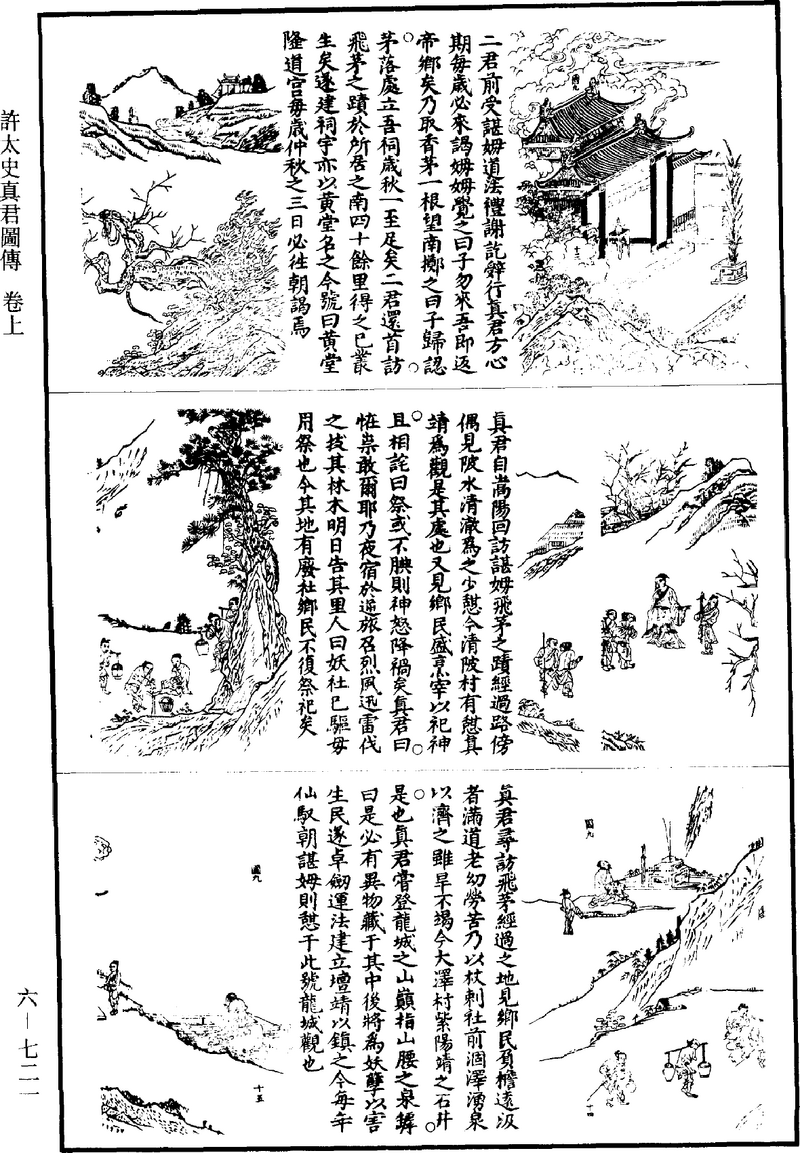 許太史真君圖傳 卷上
六—七二一
二君前受諶姆道法禮謝訖辭行真君方心
期每歲必來謁姆姆覺之曰子勿來吾即返
帝鄉矣乃取香茅一根望南擲之曰子歸認
茅落處立吾祠歲秋一至足矣二君還首訪
飛茅之蹟於所居之南四十餘里得之已叢
生矣遂建祠宇亦以黄堂名之今號曰黄堂
隆道宫每歲仲秋之三日必往朝謁焉
真君自嵩陽回訪諶姆飛茅之蹟經過路傍
偶見陂水清澈為之少憩今清陂村有憩真
靖為觀是其處也又見鄉民盛烹宰以祀神
且相詫曰祭或不腆則神怒降禍矣真君曰
恠祟敢爾耶乃夜宿於逆旅召烈風迅雷伐
之拔其林木明日告其里人曰妖社已驅毋
用祭也今其地有廢社鄉民不復祭祀矣
圖九
真君尋訪飛茅經過之地見鄉民負檐遠汲
者滿道老幼勞苦乃以杖刺社前涸澤湧泉
以濟之雖旱不竭今大澤村紫陽靖之石井
是也真君嘗登龍城之山巔指山腰之泉罅
曰是必有異物藏于其中後將為妖孽以害
生民遂卓劍運法建立壇靖以鎮之今每年
仙馭朝諶姆則憩于此號龍城觀也
圖九
十五